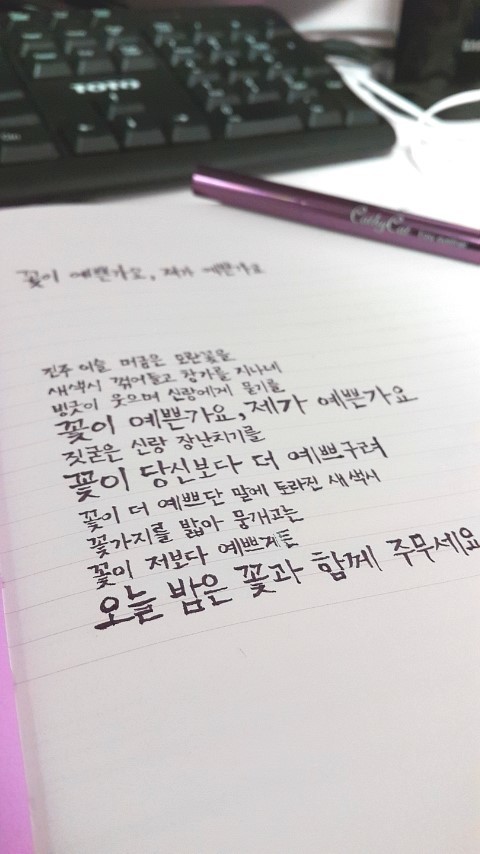 TOTO
CathyCat
꽃이 예쁜가요, 제가 예쁜가요
진주 이슬 머금은 모란꽃을
새색시 꺾어들고 창가를 지나네
빙긋이 웃으며 신랑에게 묻기를
꽃이 예쁜가요, 제가 예쁜가요
짓굳은 신랑 장난치기를
꽃이 당신보다 더 예쁘구려
꽃이 더 예쁘단 말에 토라진 새색시
꽃가지를 밟아 뭉개고는
꽃이 저보다 예쁘거든
오늘 밤은 꽃과 함께 주무세요